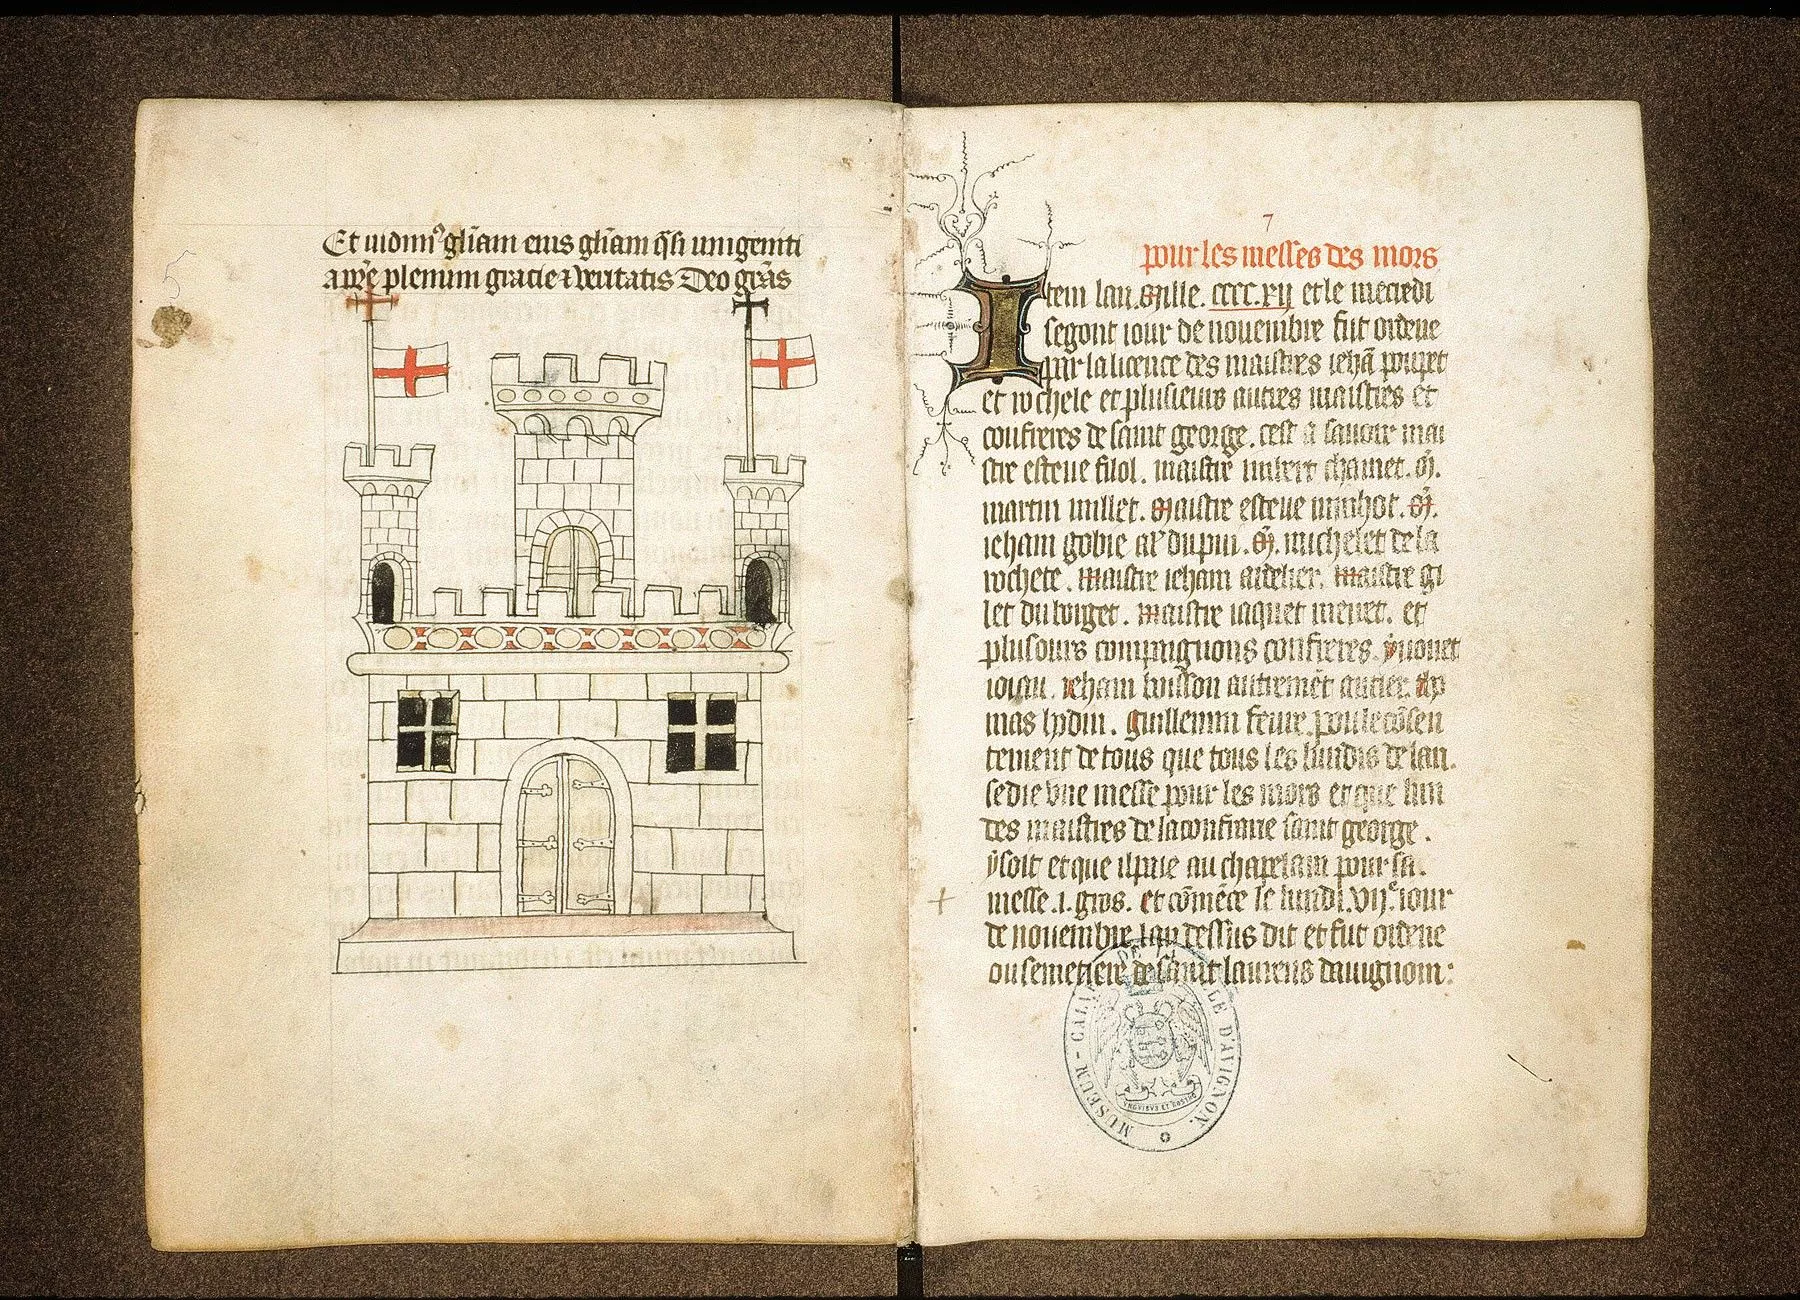 Et vidimꝰ gl̄iam eius gl̄iam q̄si unigeniti
a pr̄e plenum gracie ⁊ veritatis Deo gr̄as
7
pour les messes des mors
Item lan mille. cccc.xij et le mecredi
segont iour de nouembre fut ordene
par la licence des maistres iehā poupet
et rochele et plusieurs autres maistres et
confreres de saint george. cest a sauoir mai
stre esteue filol. maistre imbert chamet. m̄.
martin millet. maistre esteue m̄.
ieham gobie dupin. m̄. michelet de la
rochete. maistre ieham artelier. maistre gi
let du borget. maistre iaquet menet. et
plusours compagnons confreres. yuonet
ioiau. ieham buisson autremēt autier. tho
mas lydin. guillemin feure. pour le cōsen
tement de tous que tous les lundis de lan.
se die vne messe pour les mors et que lun
des maistres de la confrarie saint george.
y soit et que il paie au chapelain pour sa.
messe .1. gros. et cōmēce le lundi. vij.e iour
de nouembre lan dessus dit et fut ordene
ou semetiere de saint laurens dauignom:
MUSEUM-CALVET DE LA VILLE D'AVIGNON.
UNGVIBVS ET ROSTRO